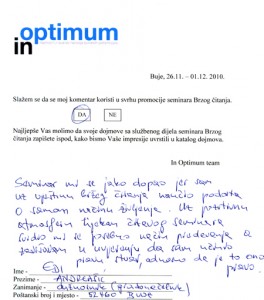 optimum
in
Buje, 26.11. – 01.12. 2010.
Slažem se da se moj komentar koristi u svrhu promocije seminara Brzog čitanja.
DA NE
Najljepše Vas molimo da svoje dojmove sa službenog dijela seminara Brzog
čitanja zapišete ispod, kako bismo Vaše impresije uvrstili u katalog dojmova.
In Optimum team
Seminar mi se jako dopao jer sam
uz vještinu brzog čitanja naučio podosta
o samom načinu življenja. Uz pozitivnu
atmosferu tijekom čitavog seminara
svidio mi se posebno način predavanja
u uvjerenju da sam učinio
pravu stvar, odnosno da je to ono
pravo.
Ime - EDI
Prezime - ANDREAŠIĆ
Zanimanje -
Poštanski broj i mjesto - 52460 BUJE